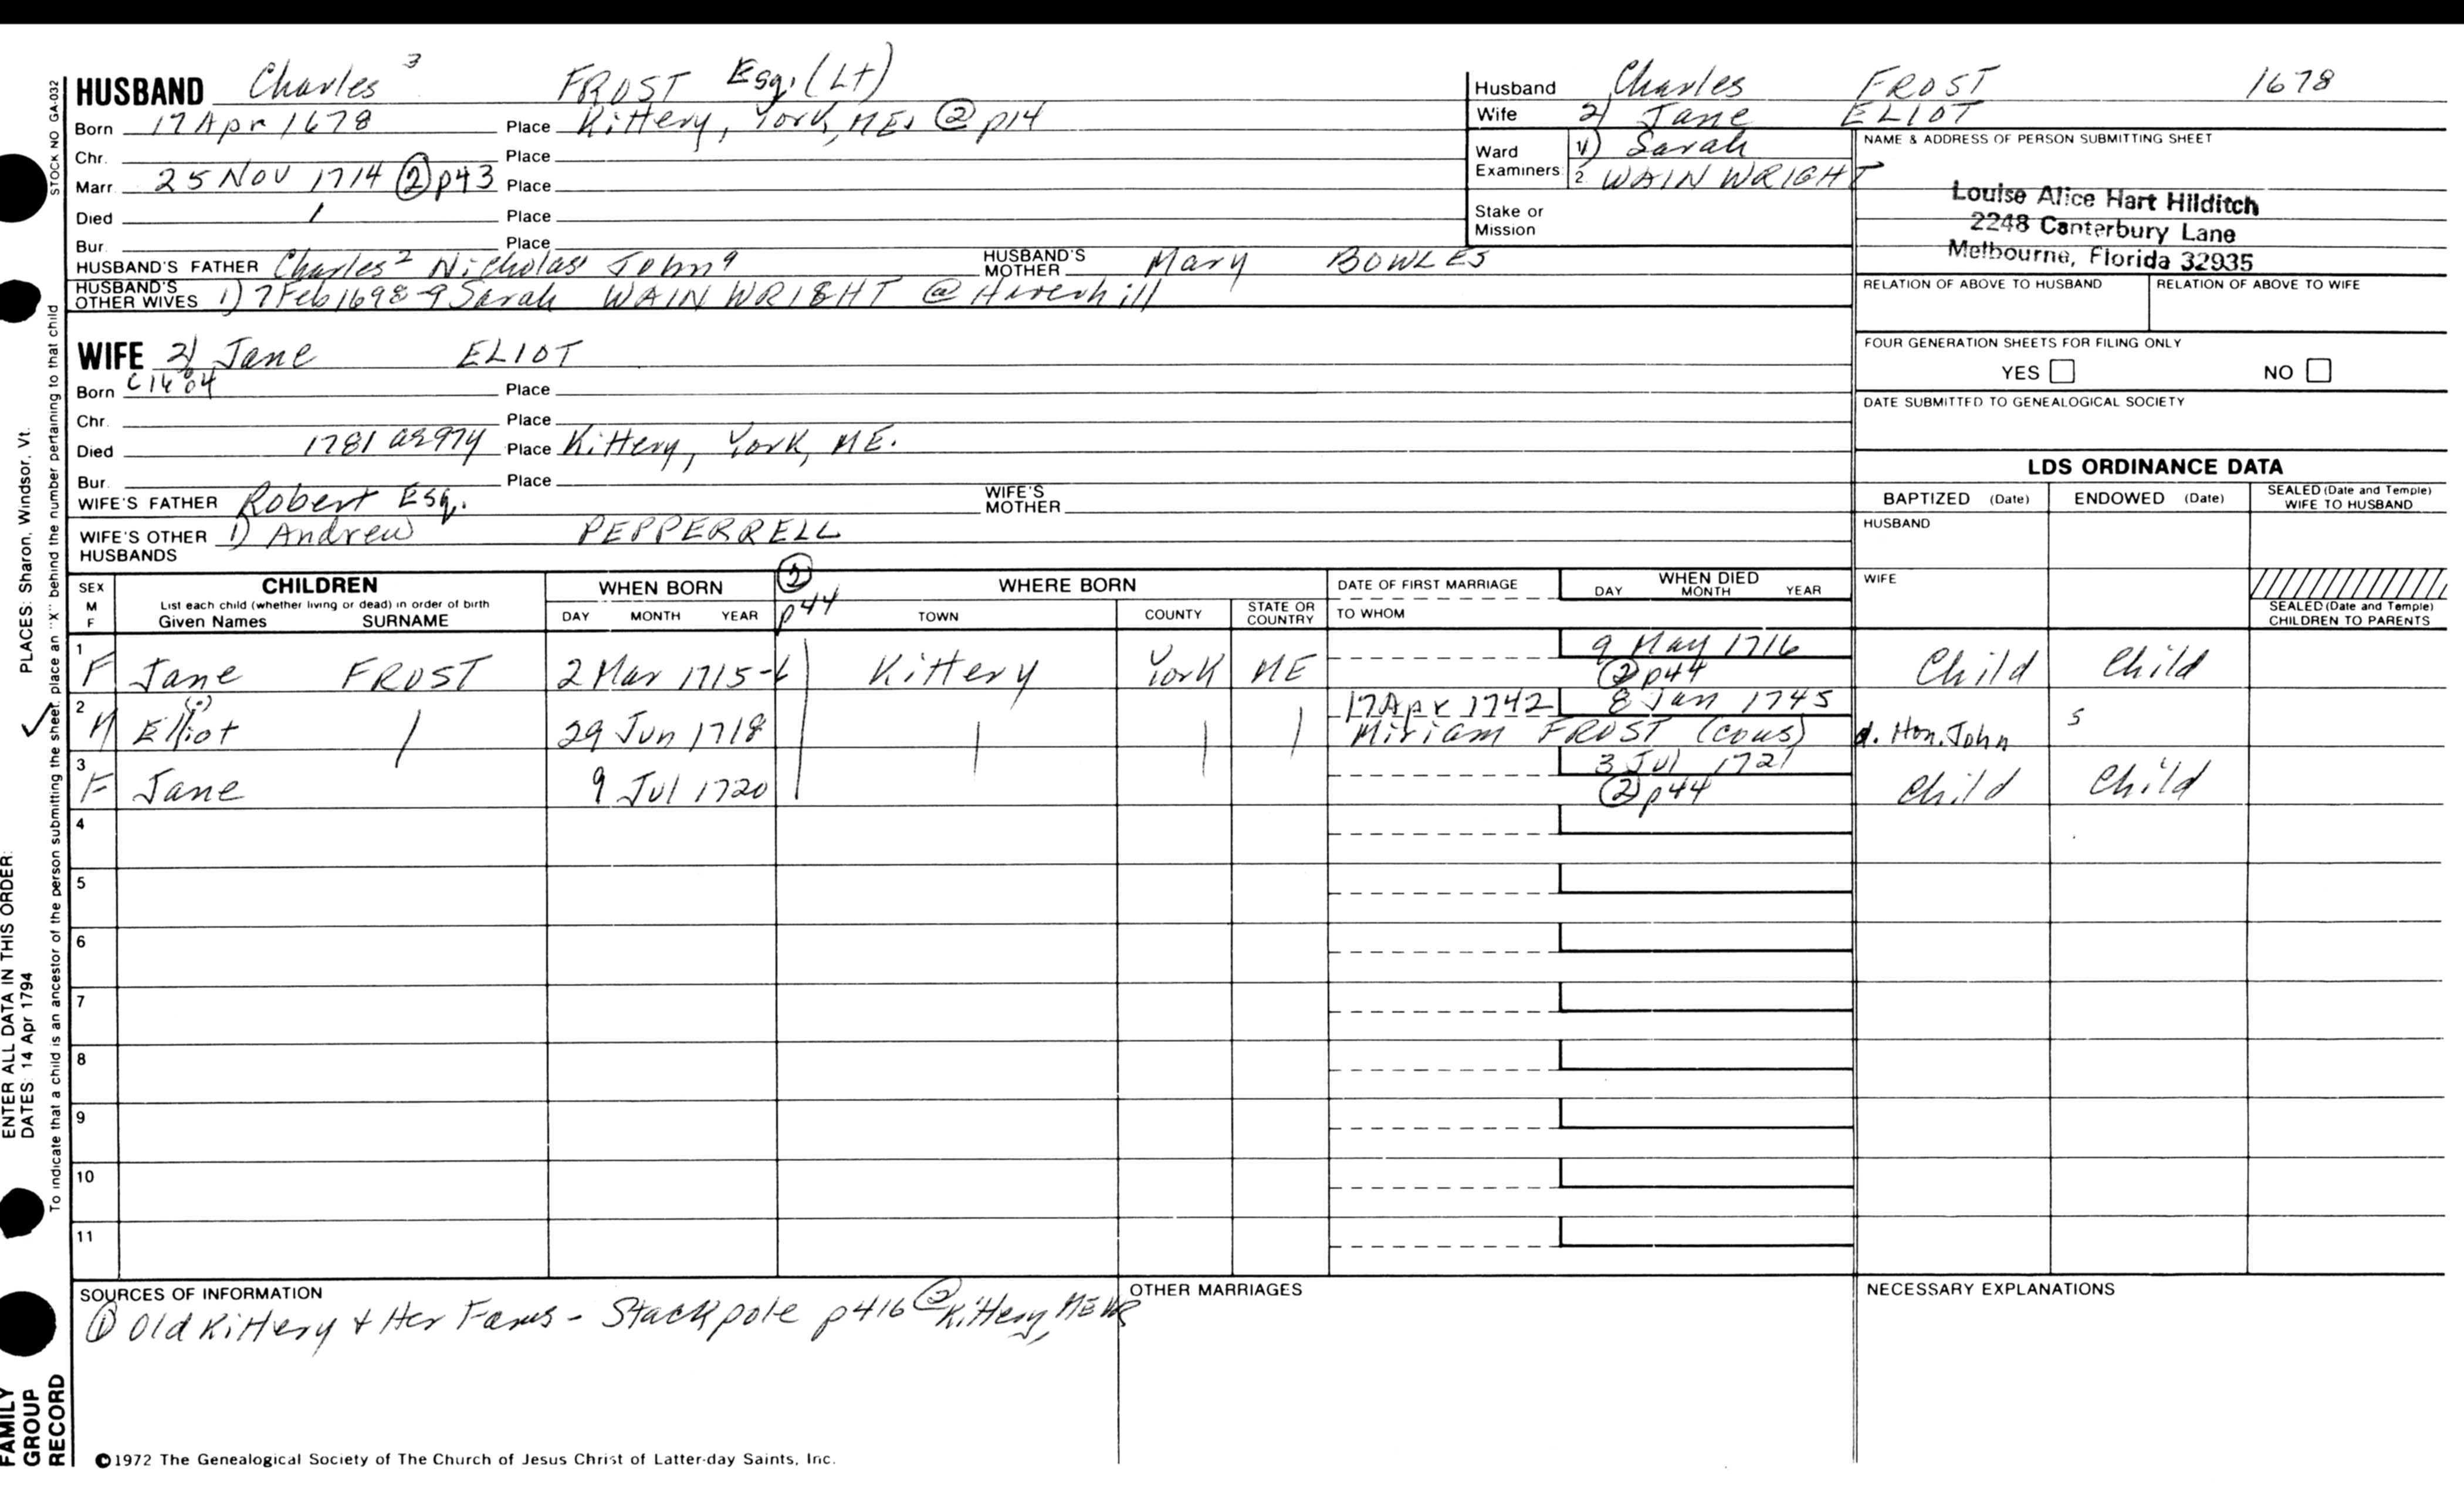 HUSBAND Charles 3 FROST Esq. (Lt)
Born 17 Apr 1678 Place Kittery, York, ME. @ p14
Chr. Place
Marr. 25 Nov 1714 ② p43 Place
Died / Place
Bur. Place
HUSBAND'S FATHER Charles 2 Nicholas John 9 HUSBAND'S MOTHER Mary BOWLES
HUSBAND'S OTHER WIVES 1) 7 Feb 1698-9 Sarah WAINWRIGHT @ Haverhill
Husband Charles FROST 1678
Wife 2) Jane ELIOT
Ward 1) Sarah
Examiners: 2. WAINWRIGHT
Stake or
Mission
NAME & ADDRESS OF PERSON SUBMITTING SHEET
Louise Alice Hart Hilditch
2248 Canterbury Lane
Melbourne, Florida 32935
RELATION OF ABOVE TO HUSBAND RELATION OF ABOVE TO WIFE
FOUR GENERATION SHEETS FOR FILING ONLY
YES NO
DATE SUBMITTED TO GENEALOGICAL SOCIETY
WIFE 2) Jane ELIOT
Born Place
Chr. Place
Died 1781 Place Kittery, York, ME.
Bur. Place
WIFE'S FATHER Robert Esq. WIFE'S MOTHER
WIFE'S OTHER HUSBANDS 1) Andrew PEPPERRELL
LDS ORDINANCE DATA
BAPTIZED (Date) ENDOWED (Date) SEALED (Date and Temple) WIFE TO HUSBAND
HUSBAND
WIFE
SEALED (Date and Temple) CHILDREN TO PARENTS
SEX M F
CHILDREN
List each child (whether living or dead) in order of birth
Given Names SURNAME
WHEN BORN
DAY MONTH YEAR
② p44
WHERE BORN
TOWN COUNTY STATE OR COUNTRY
DATE OF FIRST MARRIAGE
TO WHOM
WHEN DIED
DAY MONTH YEAR
1 F Jane FROST 2 Mar 1715-6 Kittery York ME 9 May 1716 ② p44 Child Child
2 M Elliot (i) / 29 Jun 1718 | | | 17 Apr 1742 8 Jan 1745
Miriam FROST (cous) d. Hon. John s
3 F Jane 9 Jul 1720 3 Jul 1721 ② p44 Child Child
4
5
6
7
8
9
10
11
SOURCES OF INFORMATION
① Old Kittery & Her Fams - Stackpole p416 ② Kittery, ME VR
OTHER MARRIAGES
NECESSARY EXPLANATIONS
©1972 The Genealogical Society of The Church of Jesus Christ of Latter-day Saints, Inc.
STOCK NO GA-032
To indicate that a child is an ancestor of the person submitting the sheet, place an "X" behind the number pertaining to that child
PLACES: Sharon, Windsor, Vt.
ENTER ALL DATA IN THIS ORDER:
DATES: 14 Apr 1794
FAMILY
GROUP
RECORD